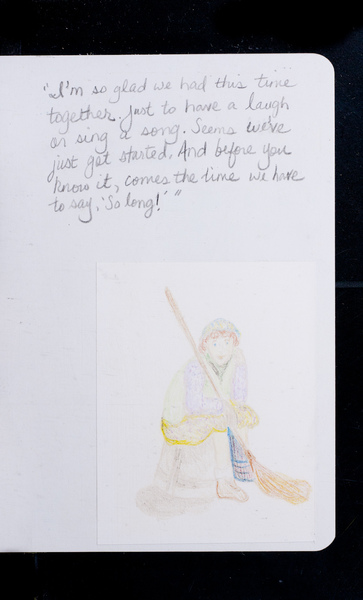 "I'm so glad we had this time
together. Just to have a laugh
or sing a song. Seems we've
just get started, And before you
know it, comes the time we have
to say, 'So long!' "